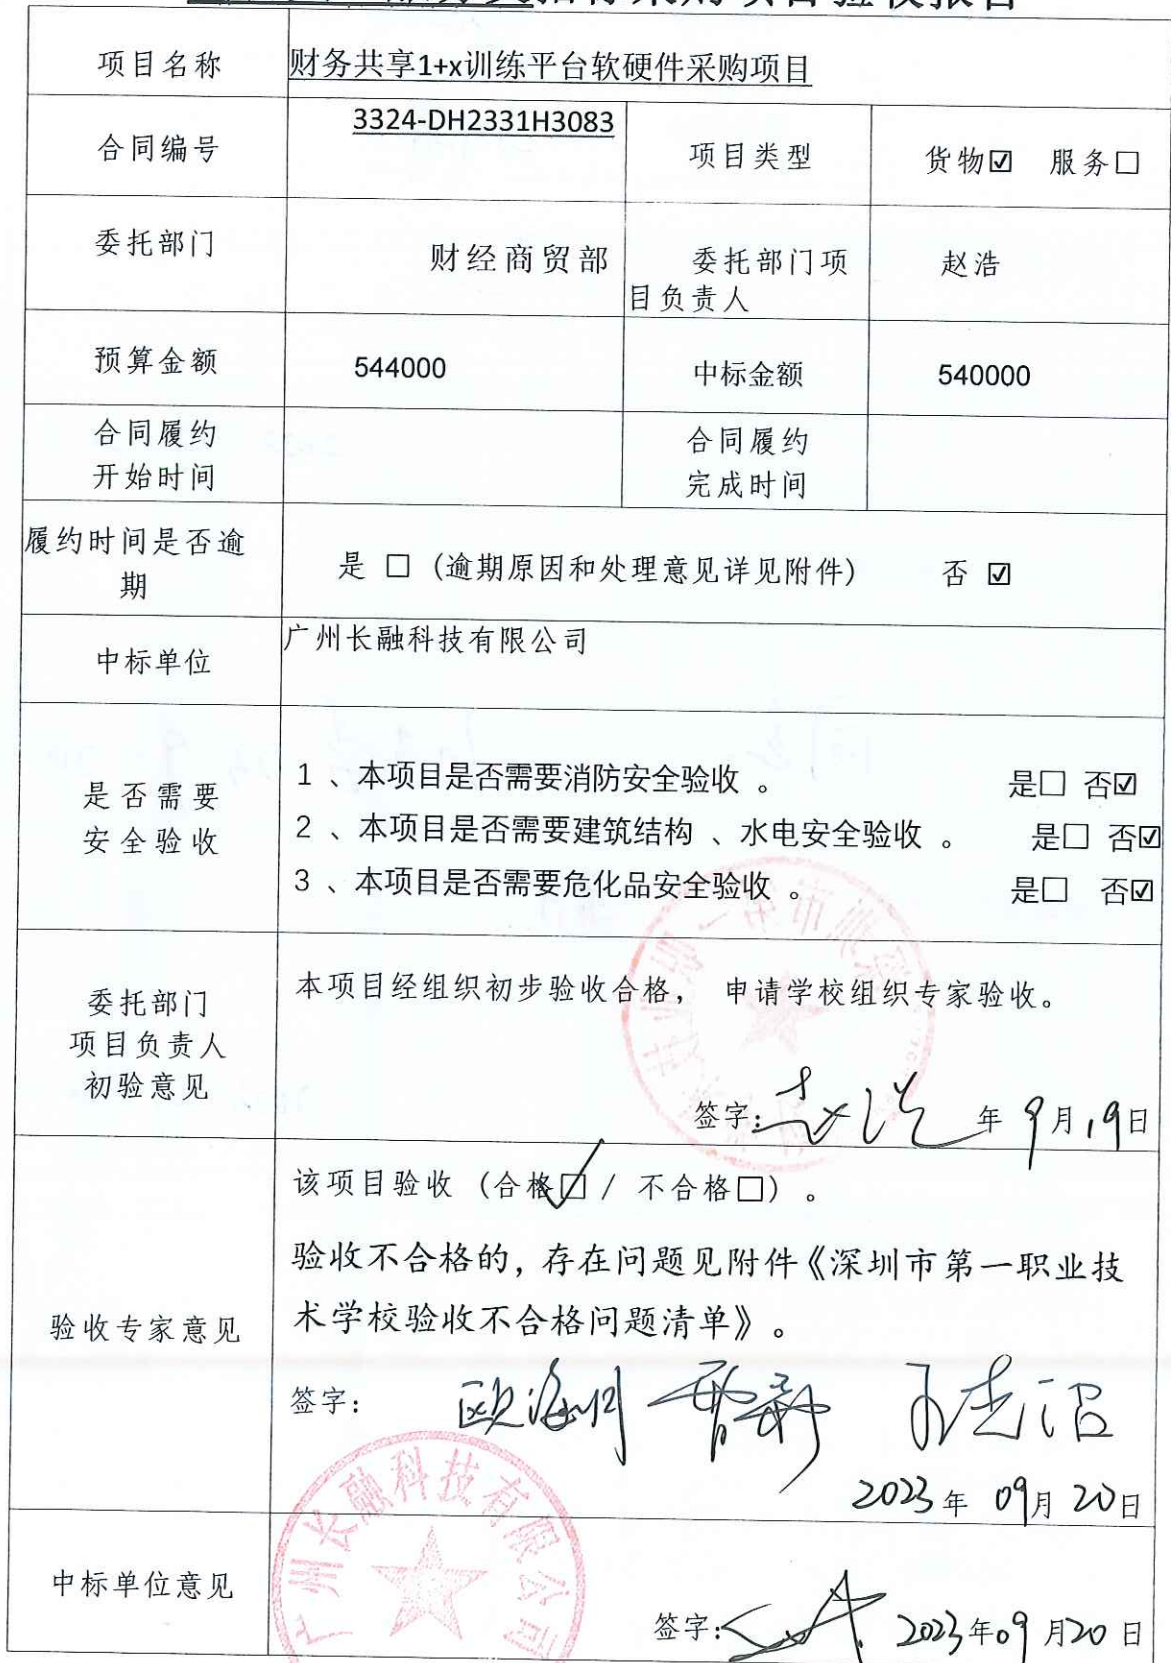 招标采购项目验收报告
项目名称
财务共享1+x训练平台软硬件采购项目
合同编号
3324-DH2331H3083
项目类型
货物☑ 服务□
委托部门
财经商贸部
委托部门项
目负责人
赵浩
预算金额
544000
中标金额
540000
合同履约
开始时间
合同履约
完成时间
履约时间是否逾
期
是 □ (逾期原因和处理意见详见附件) 否 ☑
中标单位
广州长融科技有限公司
是否需要
安全验收
1 、本项目是否需要消防安全验收 。 是□ 否☑
2 、本项目是否需要建筑结构 、水电安全验收 。 是□ 否☑
3 、本项目是否需要危化品安全验收 。 是□ 否☑
委托部门
项目负责人
初验意见
本项目经组织初步验收合格， 申请学校组织专家验收。
签字: 赵浩 年 9月19日
验收专家意见
该项目验收 (合格☑ / 不合格□) 。
验收不合格的, 存在问题见附件《深圳市第一职业技
术学校验收不合格问题清单》。
签字:
2023年 09月 20日
中标单位意见
广州长融科技有限公司
签字: 2023年09月20日